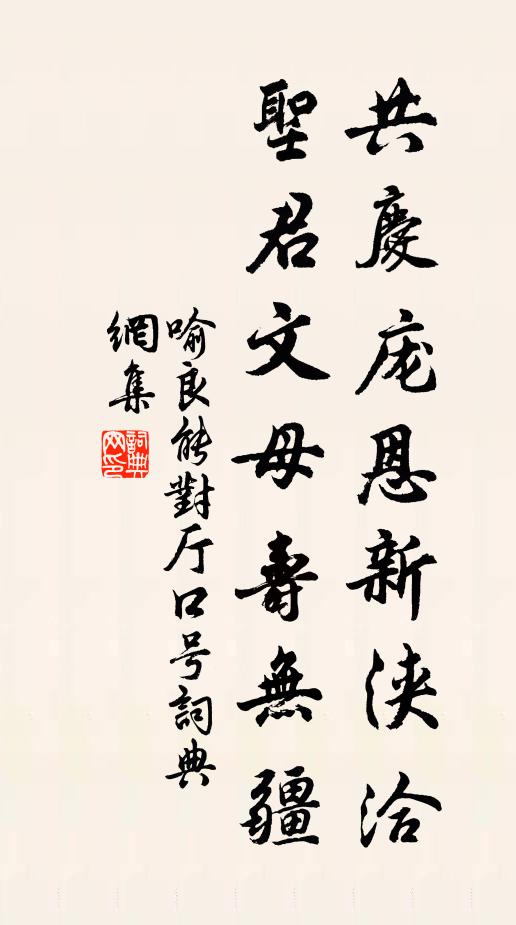 共慶庬恩新浹洽
聖君文母壽無疆
喻良能對厅口号詞典
網集
詞典
网印